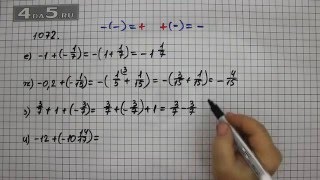 4a5.ru
-(-) = + +(-) = -
1072.
е) -1 + (-1/7) = -(1 + 1/7) = -1 1/7
ж) -0,2 + (-1/15) = -(1/5^{(3} + 1/15) = -(3/15 + 1/15) = -4/15
з) 3/7 + 1 + (-3/7) = 3/7 + (-3/7) + 1 = 3/7 - 3/7
и) -12 + (-10 14/17) =